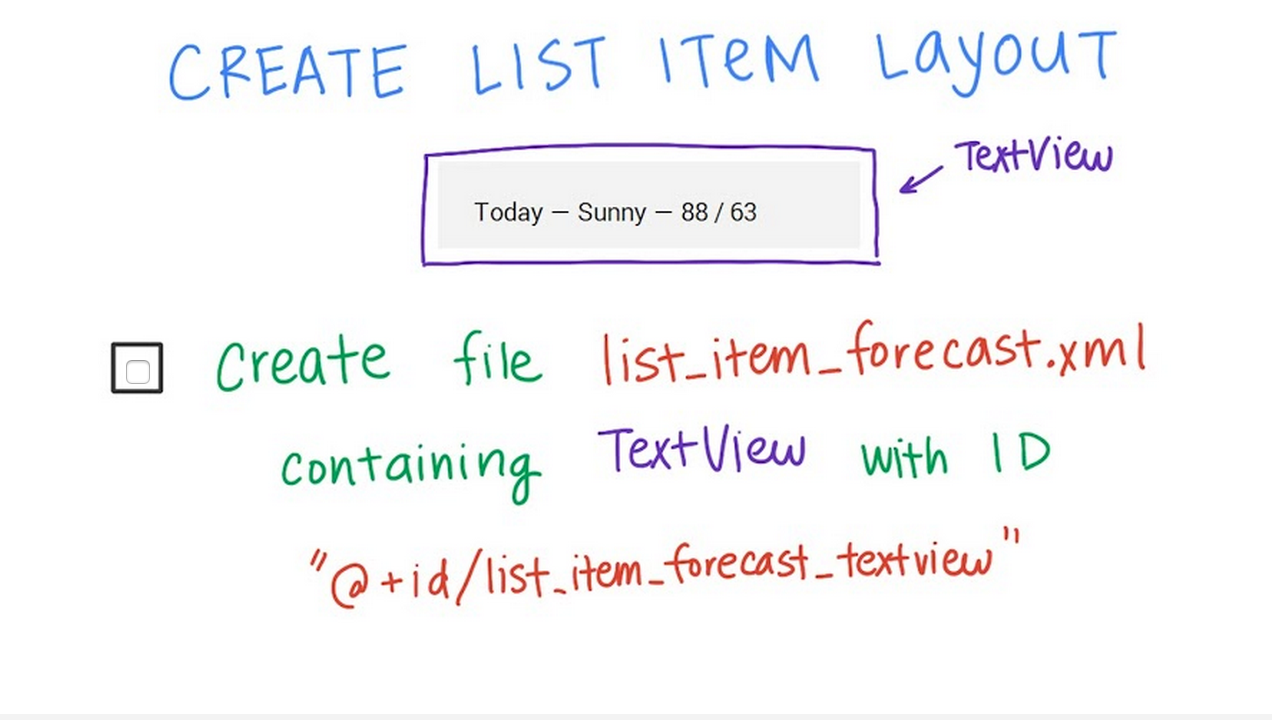 CREATE LIST ITEM LAYOUT
TextView
Today – Sunny – 88 / 63
Create file list_item_forecast.xml
containing TextView with ID
"@+id/list_item_forecast_textview"